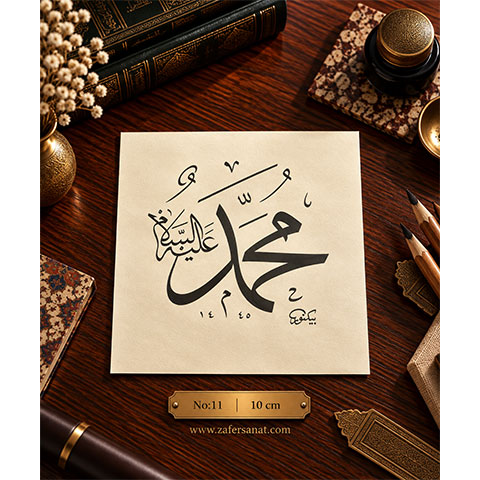 محمد
عليه السلام
١٤٤٥
No:11 | 10 cm
www.zafersanat.com